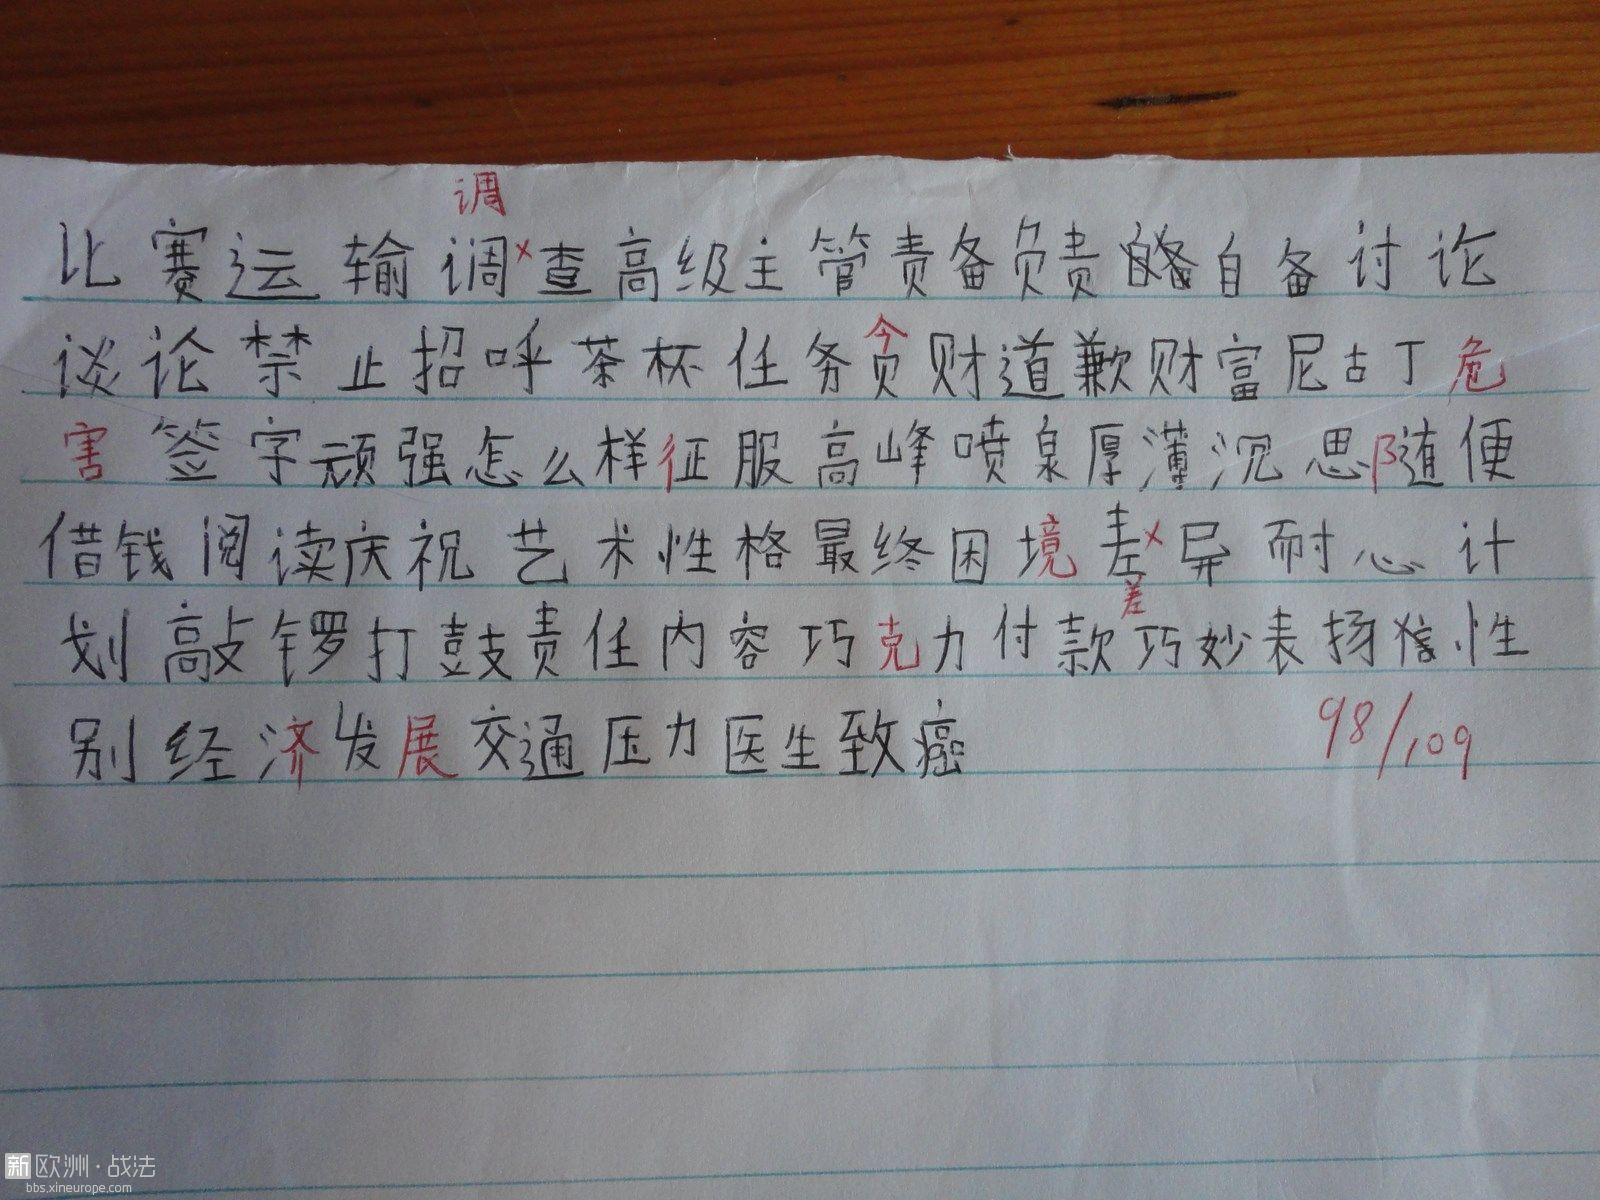 调
比赛运输调×查高级主管责备负责自备讨论
谈论禁止招呼茶杯任务贪财道歉财富尼古丁危
害签字顽强怎么样征服高峰喷泉厚薄沉思随便
借钱阅读庆祝艺术性格最终困境差×异耐心计
差
划敲锣打鼓责任内容巧克力付款巧妙表扬性
别经济发展交通压力医生致癌
98/109
新欧洲·战法
bbs.xineurope.com